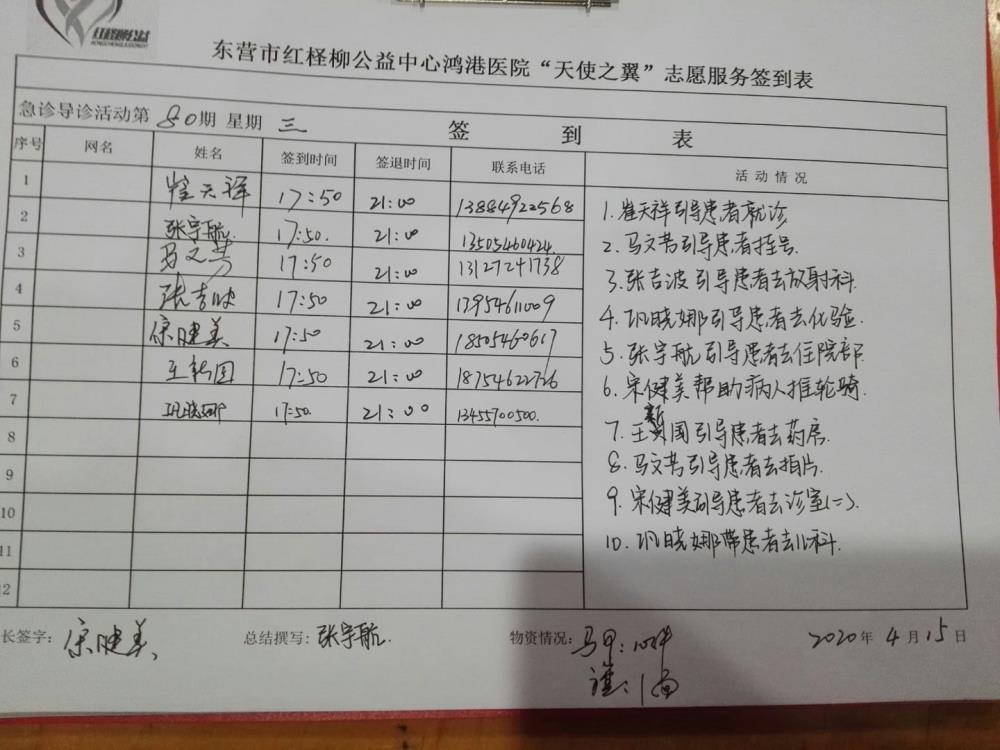 红柽柳公益
东营市红柽柳公益中心鸿港医院“天使之翼”志愿服务签到表
急诊导诊活动第80期 星期三 签到表
序号 网名 姓名 签到时间 签退时间 联系电话 活动情况
1 崔天祥 17:50 21:00 13884922568
2 张宇航. 17:50. 21:00 13505460424
3 马文芳 17:50 21:00 13127241738
4 张吉波 17:50 21:00 13954611009
5 宋健美 17:50 21:00 18505460617
6 王新国 17:50 21:00 18754622726
7 巩晓娜 17:50. 21:00 13455700500.
8
9
10
11
12
1.崔天祥引导患者就诊
2.马文芳引导患者挂号.
3.张吉波引导患者去放射科.
4.巩晓娜引导患者去化验.
5.张宇航引导患者去住院部
6.宋健美帮助病人推轮骑.
7.王新国引导患者去药房.
8.马文芳引导患者去拍片.
9.宋健美引导患者去诊室(二).
10.巩晓娜带患者去儿科.
长签字: 宋健美 总结撰写: 张宇航. 物资情况: 马甲:10件
2020年4月15日